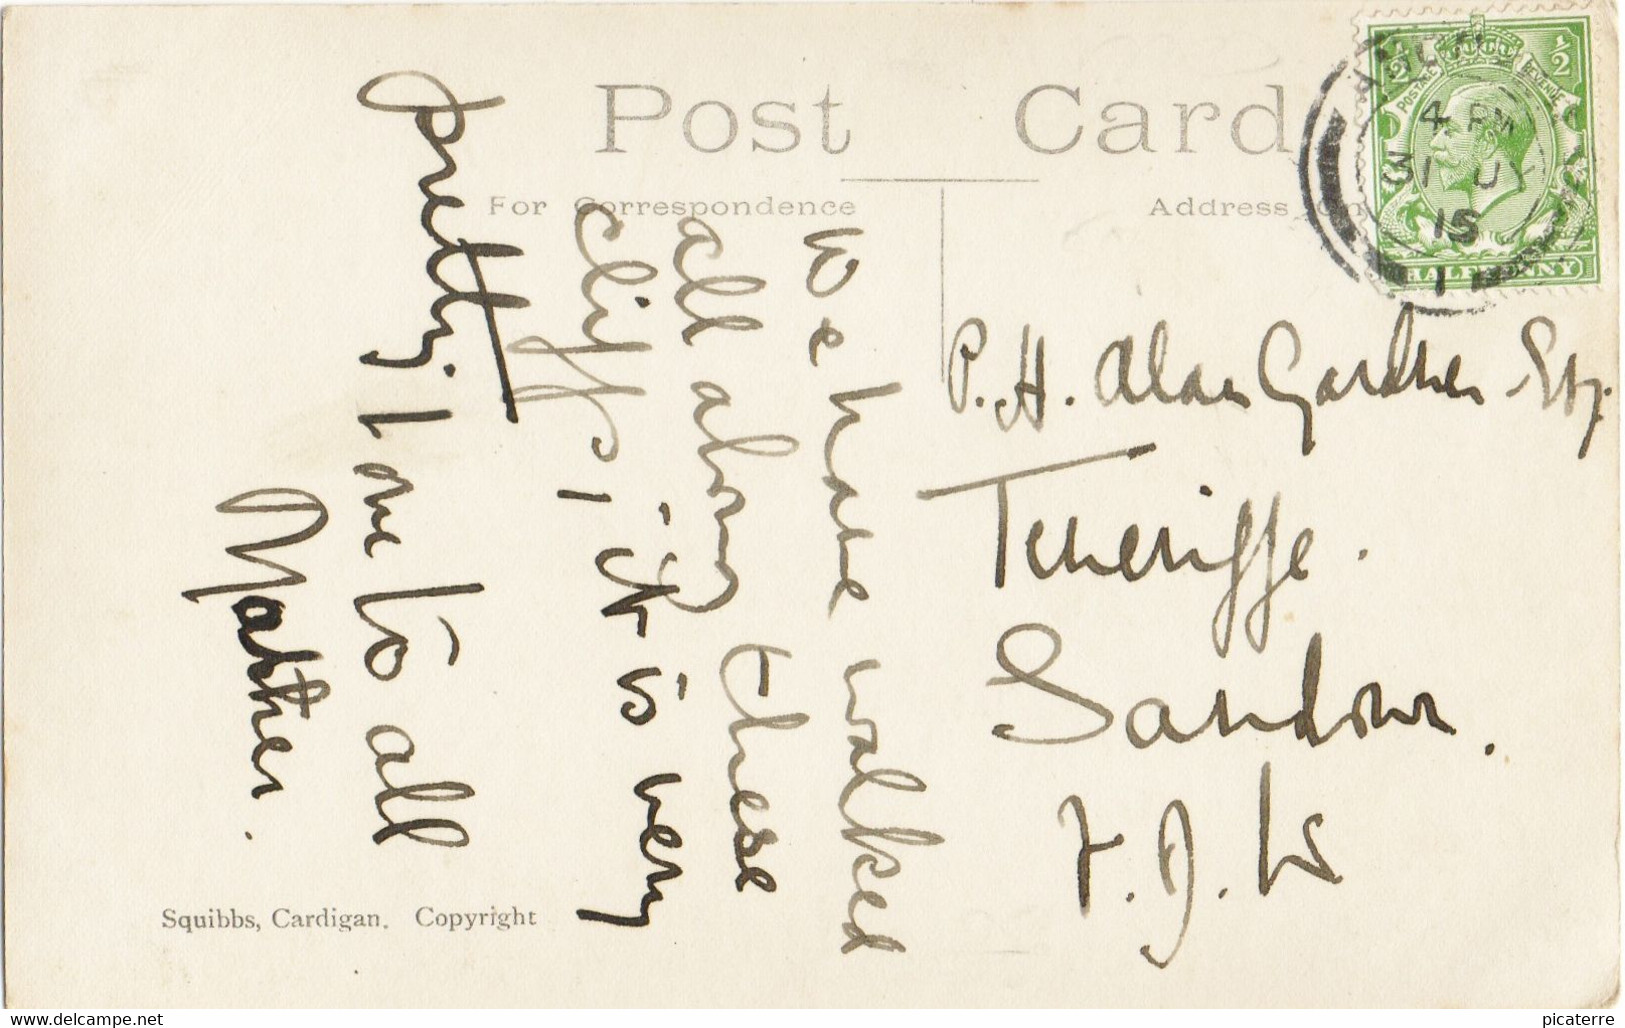 Post Card
For Correspondence
Address on
½ ½
POSTAGE REVENUE
HALFPENNY
4 PM
31 JY
15
1
We have walked
all along these
cliffs, it is very
pretty. Love to all
Mother.
P. H. Alan Gardner Esq.
Teneriffe.
Sandown.
I. J. W
Squibbs, Cardigan. Copyright
www.delcampe.net
picaterre